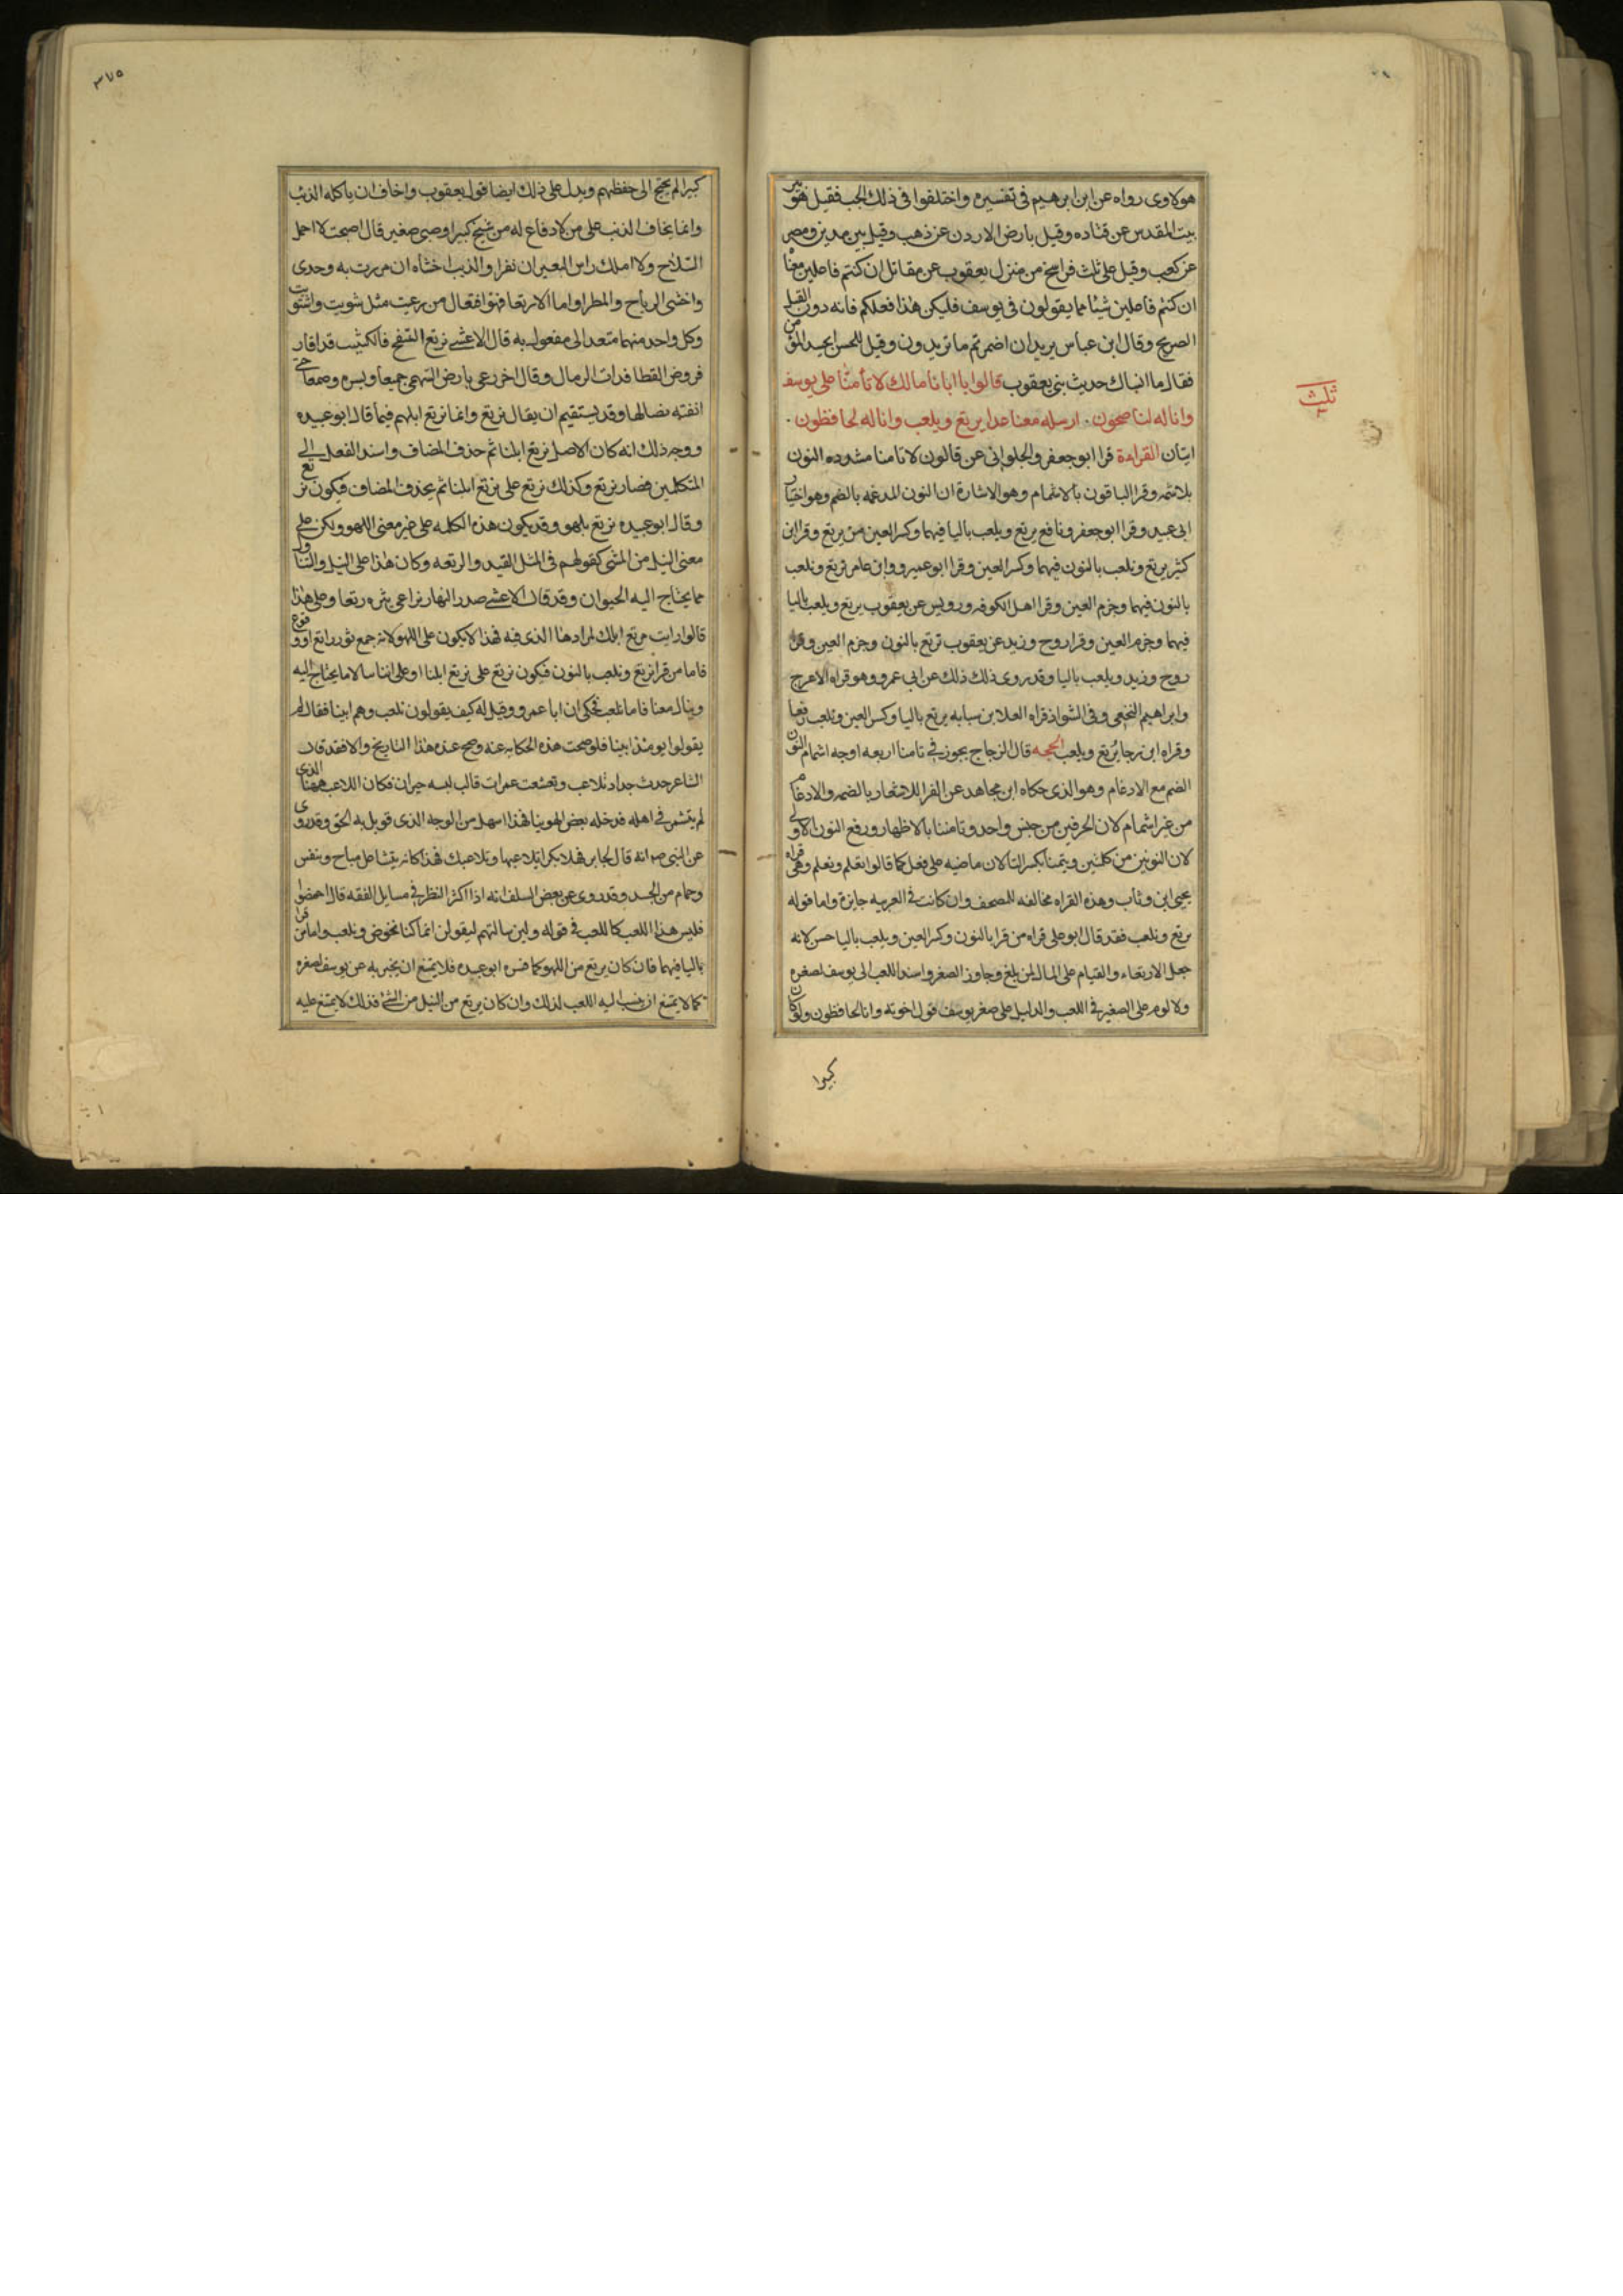 هولاوى رواه عن ابن ابرهيم فى تفسيره واختلفوا فى ذلك الجب فقيل هو بير
بيت المقدس عن قتاده وقيل بارض الاردن عن وهب وقيل بين مدين ومصر
عن كعب وقيل على ثلث فراسخ من منزل يعقوب عن مقاتل ان كنتم فاعلين معناه
ان كنتم فاعلين شيئا مما يقولون فى يوسف فليكن هذا فعلكم فانه دون القتل
الصريح وقال ابن عباس يريد ان اضمرتم ما تريدون وقيل للحسن ايحسد المؤمن
فقال ما انساك حديث بنى يعقوب قالوا يا ابانا مالك لا تأمنا على يوسف
وانا له لناصحون . ارسله معنا غدا يرتع ويلعب وانا له لحافظون .
ايتان القراءة قرا ابو جعفر والحلوانى عن قالون لا تامنا مشدده النون
بلا شمه وقرا الباقون بالاشمام وهو الاشارة ان النون المدغمه بالضم وهو اختيار
ابى عبيد وقرا ابو جعفر ونافع يرتع ويلعب باليا فيهما وكسر العين من يرتع وقرا ابن
كثير نرتع ونلعب بالنون فيهما وكسر العين وقرا ابو عمرو وابن عامر نرتع ونلعب
بالنون فيهما وجزم العين وقرا اهل الكوفه ورويس عن يعقوب يرتع ويلعب باليا
فيهما وجزم العين وقرا روح وزيد عن يعقوب نرتع بالنون وجزم العين وقرا
روح وزيد ويلعب باليا وقد روى ذلك ذلك عن ابى عمرو وهو قراه الاعرج
وابراهيم النخعى وفى الشواذ قراه العلا بن سبابه يرتع باليا وكسر العين ونلعب رفعا
وقراه ابن رجا يُرتع ويلعب الحجه قال الزجاج يجوز فى تامنا اربعه اوجه اشمام النون
الضم مع الادغام وهو الذى حكاه ابن مجاهد عن الفرا للاشعار بالضمه والادغام
من غير اشمام لان الحرفين من جنس واحد وتامننا بالاظهار ورفع النون الاولى
لان النونين من كلمتين وتيمنا بكسر التا لان ماضيه على فعل كما قالوا تعلم ونعلم وهى قراه
يحيى ابن وثاب وهذه القراه مخالفه للمصحف وان كانت فى العربيه جايزة واما قوله
يرتع ونلعب فقد قال ابو على قراه من قرا بالنون وكسر العين ويلعب باليا حسن لانه
جعل الارتعاء والقيام على المال لمن بلغ وجاوز الصغر واسند اللعب الى يوسف لصغره
ولا لوم على الصغير فى اللعب والدليل على صغر يوسف قول اخوته وانا له لحافظون ولو كان
كبيرا
ثلث
٣٧٥
كبيرا لم يحتج الى حفظهم ويدل على ذلك ايضا قول يعقوب واخاف ان ياكله الذئب
وانما يخاف الذئب على من لا دفاع له من شيخ كبير او صبى صغير قال اصبحت لا احمل
السلاح ولا املك راس البعير ان نفرا والذيب اخشاه ان مررت به وحدى
واخشى الرياح والمطرا واما الارتعا فهو افتعال من رعيت مثل شويت واشتويت
وكل واحد منهما متعد الى مفعول به قال الاعشى نرتع السفح فالكثيب فذا قار
فروض القطا فذات الرمال وقال اخر رعى بارض البهمى جميعا وبسره وصمعا حتى
انفته نصالها وقد يستقيم ان يقال نرتع وانما نرتع ابلهم فيما قال ابو عبيده
ووجه ذلك انه كان الاصل نرتع ابلنا ثم حذف المضاف واسند الفعل الى
المتكلمين فصار نرتع وكذلك نرتع على نرتع ابلنا ثم يحذف المضاف فيكون نرتع
وقال ابو عبيده نرتع نلهو وقد يكون هذه الكلمه على غير معنى اللهو ولكن على
معنى النيل من الشى كقولهم فى المثل القيد والرتعه وكان هذا على النيل والتناول
مما يحتاج اليه الحيوان وقد قال الاعشى صدر النهار تراعى ثيره رتعا وعلى هذا
قالوا رايت مرتع ابلك لمرادها الذى فيه فهذا لا يكون على اللهو لانه جمع ثور راتع او رتوع
فاما من قرا نرتع ونلعب بالنون فيكون نرتع على نرتع ابلنا او على اننا ننال ما يحتاج اليه
وينال معنا فاما نلعب فحكى ان ابا عمرو وقيل له كيف يقولون نلعب وهم انبيا فقال لم
يقولوا يومئذ انبيا فلو صحت هذه الحكايه عنه وصح عنده هذا التاريخ والا فقد قال
الشاعر حدث جداد تلاعب وتقشعت غمرات قالب لبسه حيران فكان اللاعب ههنا الذى
لم يتشمر فى اهله فدخله بعض الهوينا فهذا اسهل من الوجه الذى قوبل به الحق وقد روى
عن النبى ص انه قال لجابر فهلا بكرا تلاعبها وتلاعبك فهذا كانه يتشاغل مباح ونفس
وجمام من الجد وقد روى عن بعض السلف انه اذا اكثر النظر فى مسايل الفقه قال احمضوا
فليس هذا اللعب كاللعب فى قوله ولين سالتهم ليقولن انما كنا نخوض ونلعب واما من قرا
باليا فيهما فان كان يرتع من اللهو كما فسره ابو عبيده فلا يمتنع ان يخبر به عن يوسف لصغره
كما لا يمتنع ان ينسب اليه اللعب لذلك وان كان يرتع من النيل من الشئ فذلك لا يمتنع عليه